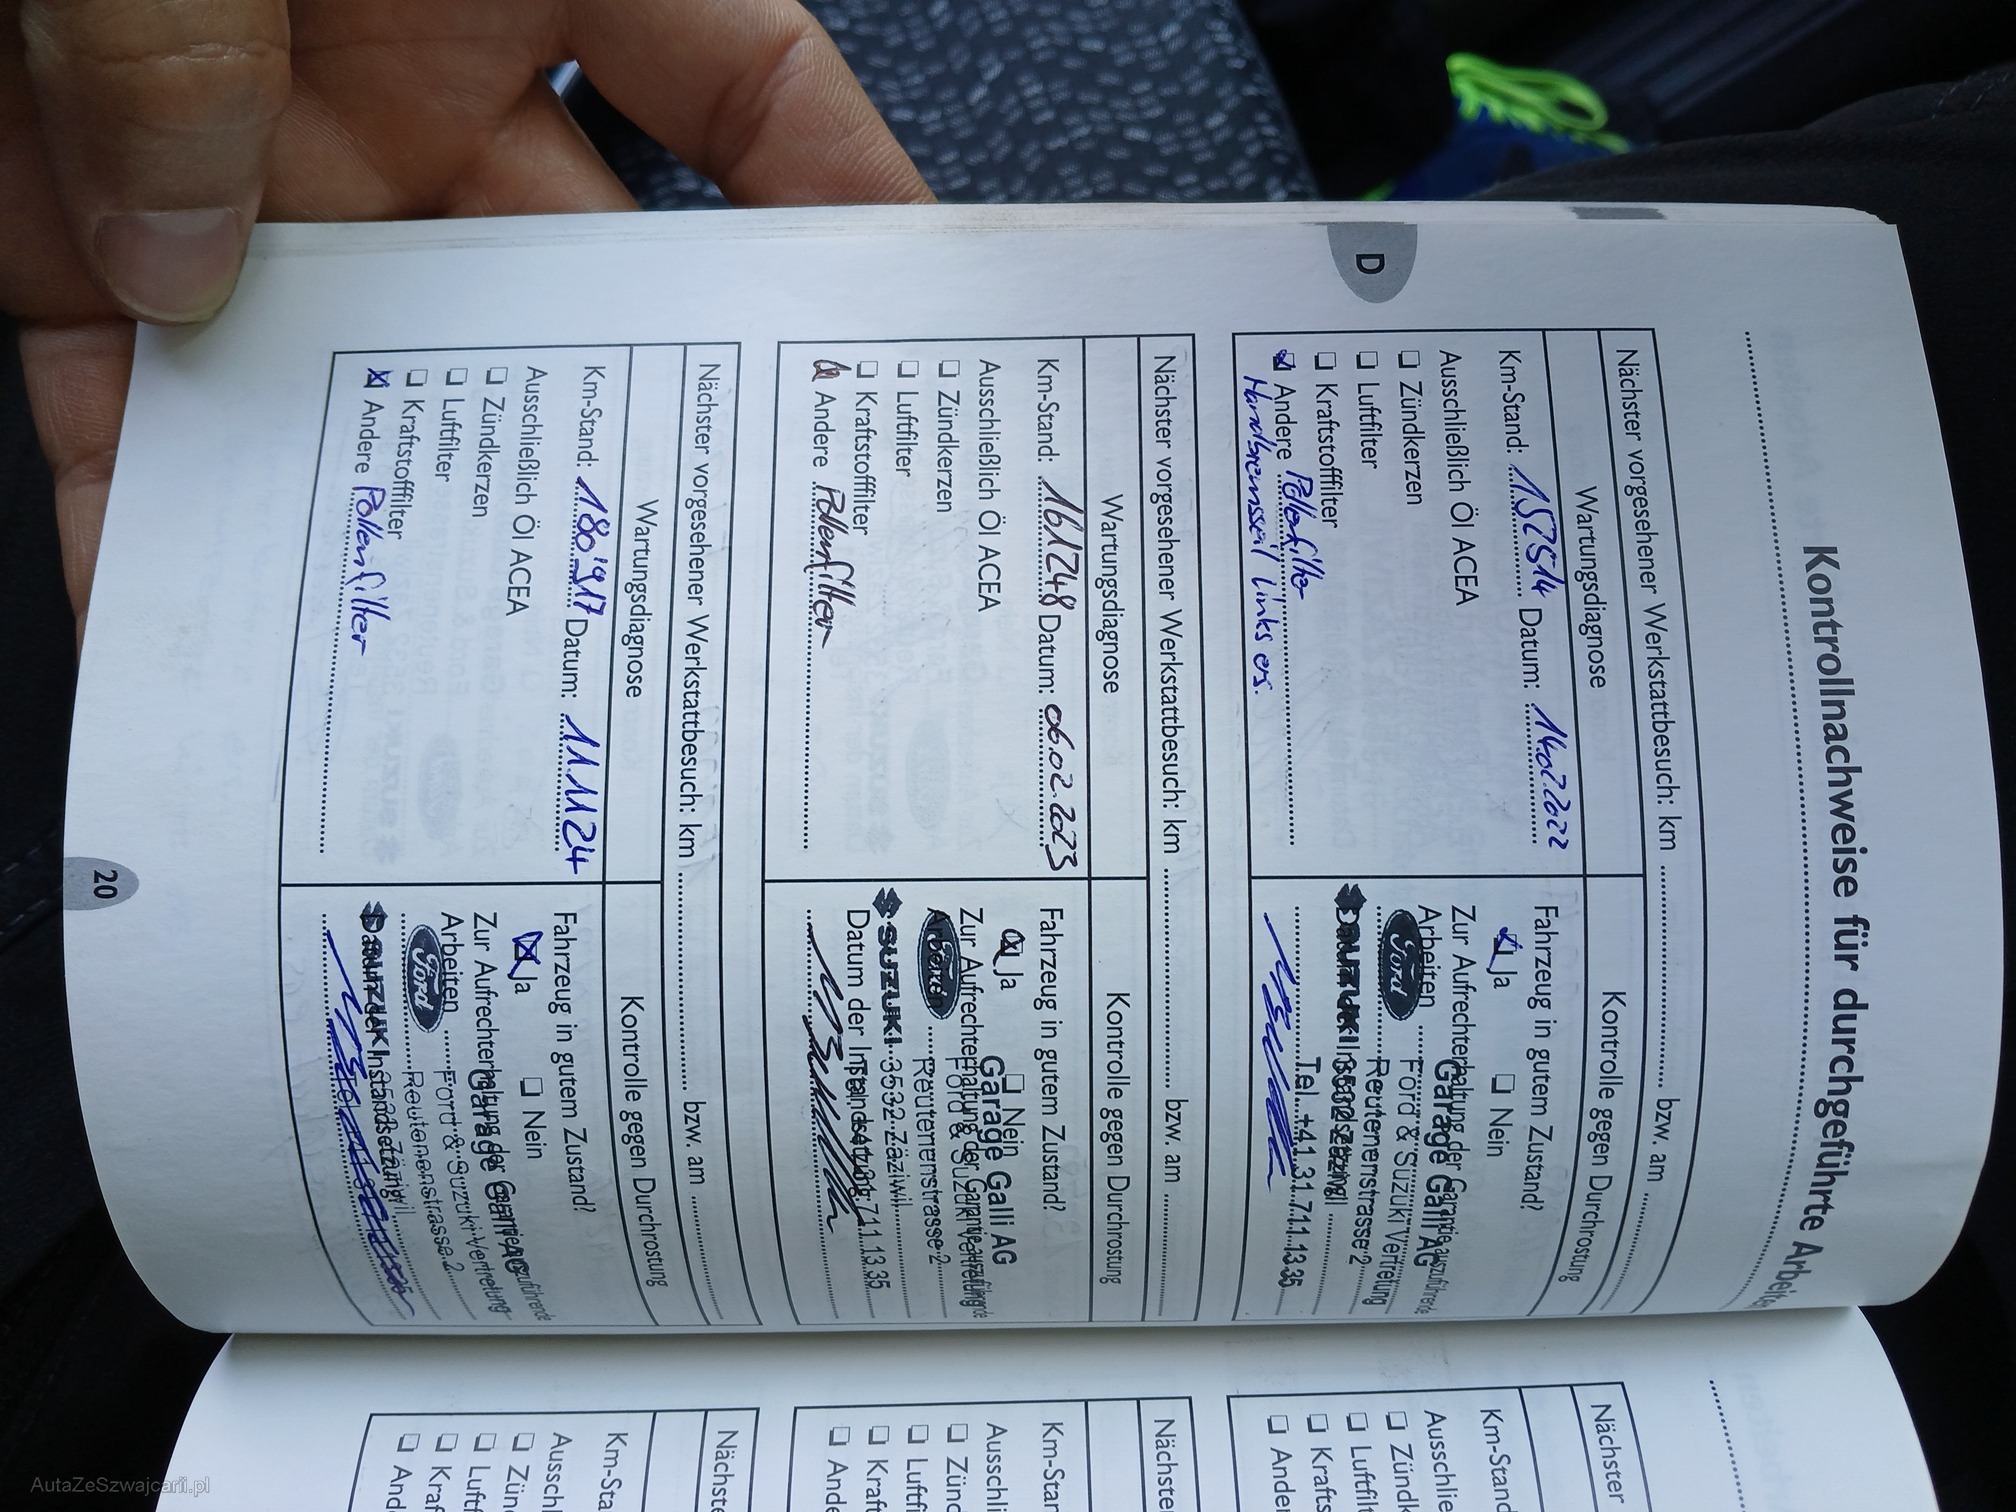 Kontrollnachweise für durchgeführte Arbeiten
D
Nächster vorgesehener Werkstattbesuch: km ............ bzw. am ............
Wartungsdiagnose
Km-Stand: 152514 Datum: 14.02.2022
Ausschließlich Öl ACEA
❏ Zündkerzen
❏ Luftfilter
❏ Kraftstofffilter
Andere Pollenfilter
Handbremsseil links ers.
Kontrolle gegen Durchrostung
Fahrzeug in gutem Zustand?
Ja ❏ Nein
Zur Aufrechterhaltung der Garantie auszuführende
Arbeiten
Garage Galli AG
Ford
Ford & Suzuki Vertretung
Reutenenstrasse 2
SUZUKI 3532 Zäziwil
Tel. +41 31 711 13 35
Nächster vorgesehener Werkstattbesuch: km ............ bzw. am ............
Wartungsdiagnose
Km-Stand: 161248 Datum: 06.02.2023
Ausschließlich Öl ACEA
❏ Zündkerzen
❏ Luftfilter
❏ Kraftstofffilter
Andere Pollenfilter
Kontrolle gegen Durchrostung
Fahrzeug in gutem Zustand?
Ja ❏ Nein
Zur Aufrechterhaltung der Garantie auszuführende
Arbeiten
Garage Galli AG
Ford
Ford & Suzuki Vertretung
Reutenenstrasse 2
SUZUKI 3532 Zäziwil
Datum der Instandsetzung:
711 13 35
Nächster vorgesehener Werkstattbesuch: km ............ bzw. am ............
Wartungsdiagnose
Km-Stand: 180'917 Datum: 11.11.24
Ausschließlich Öl ACEA
❏ Zündkerzen
❏ Luftfilter
❏ Kraftstofffilter
Andere Pollenfilter
Kontrolle gegen Durchrostung
Fahrzeug in gutem Zustand?
Ja ❏ Nein
Zur Aufrechterhaltung der Garantie auszuführende
Arbeiten
Garage Galli AG
Ford
Ford & Suzuki Vertretung
Reutenenstrasse 2
SUZUKI 3532 Zäziwil
Datum der Instandsetzung
20
Nächster
Km-Stand
Ausschließ
❏ Zündk
❏ Luftfilt
❏ Krafts
❏ Ande
Nächste
Km-Star
Ausschli
❏ Zünd
❏ Luftf
❏ Kraf
❏ Ande
Nächs
Km-Sta
Aussch
❏ Zün
❏ Luft
❏ Kraf
❏ And
AutaZeSzwajcarii.pl